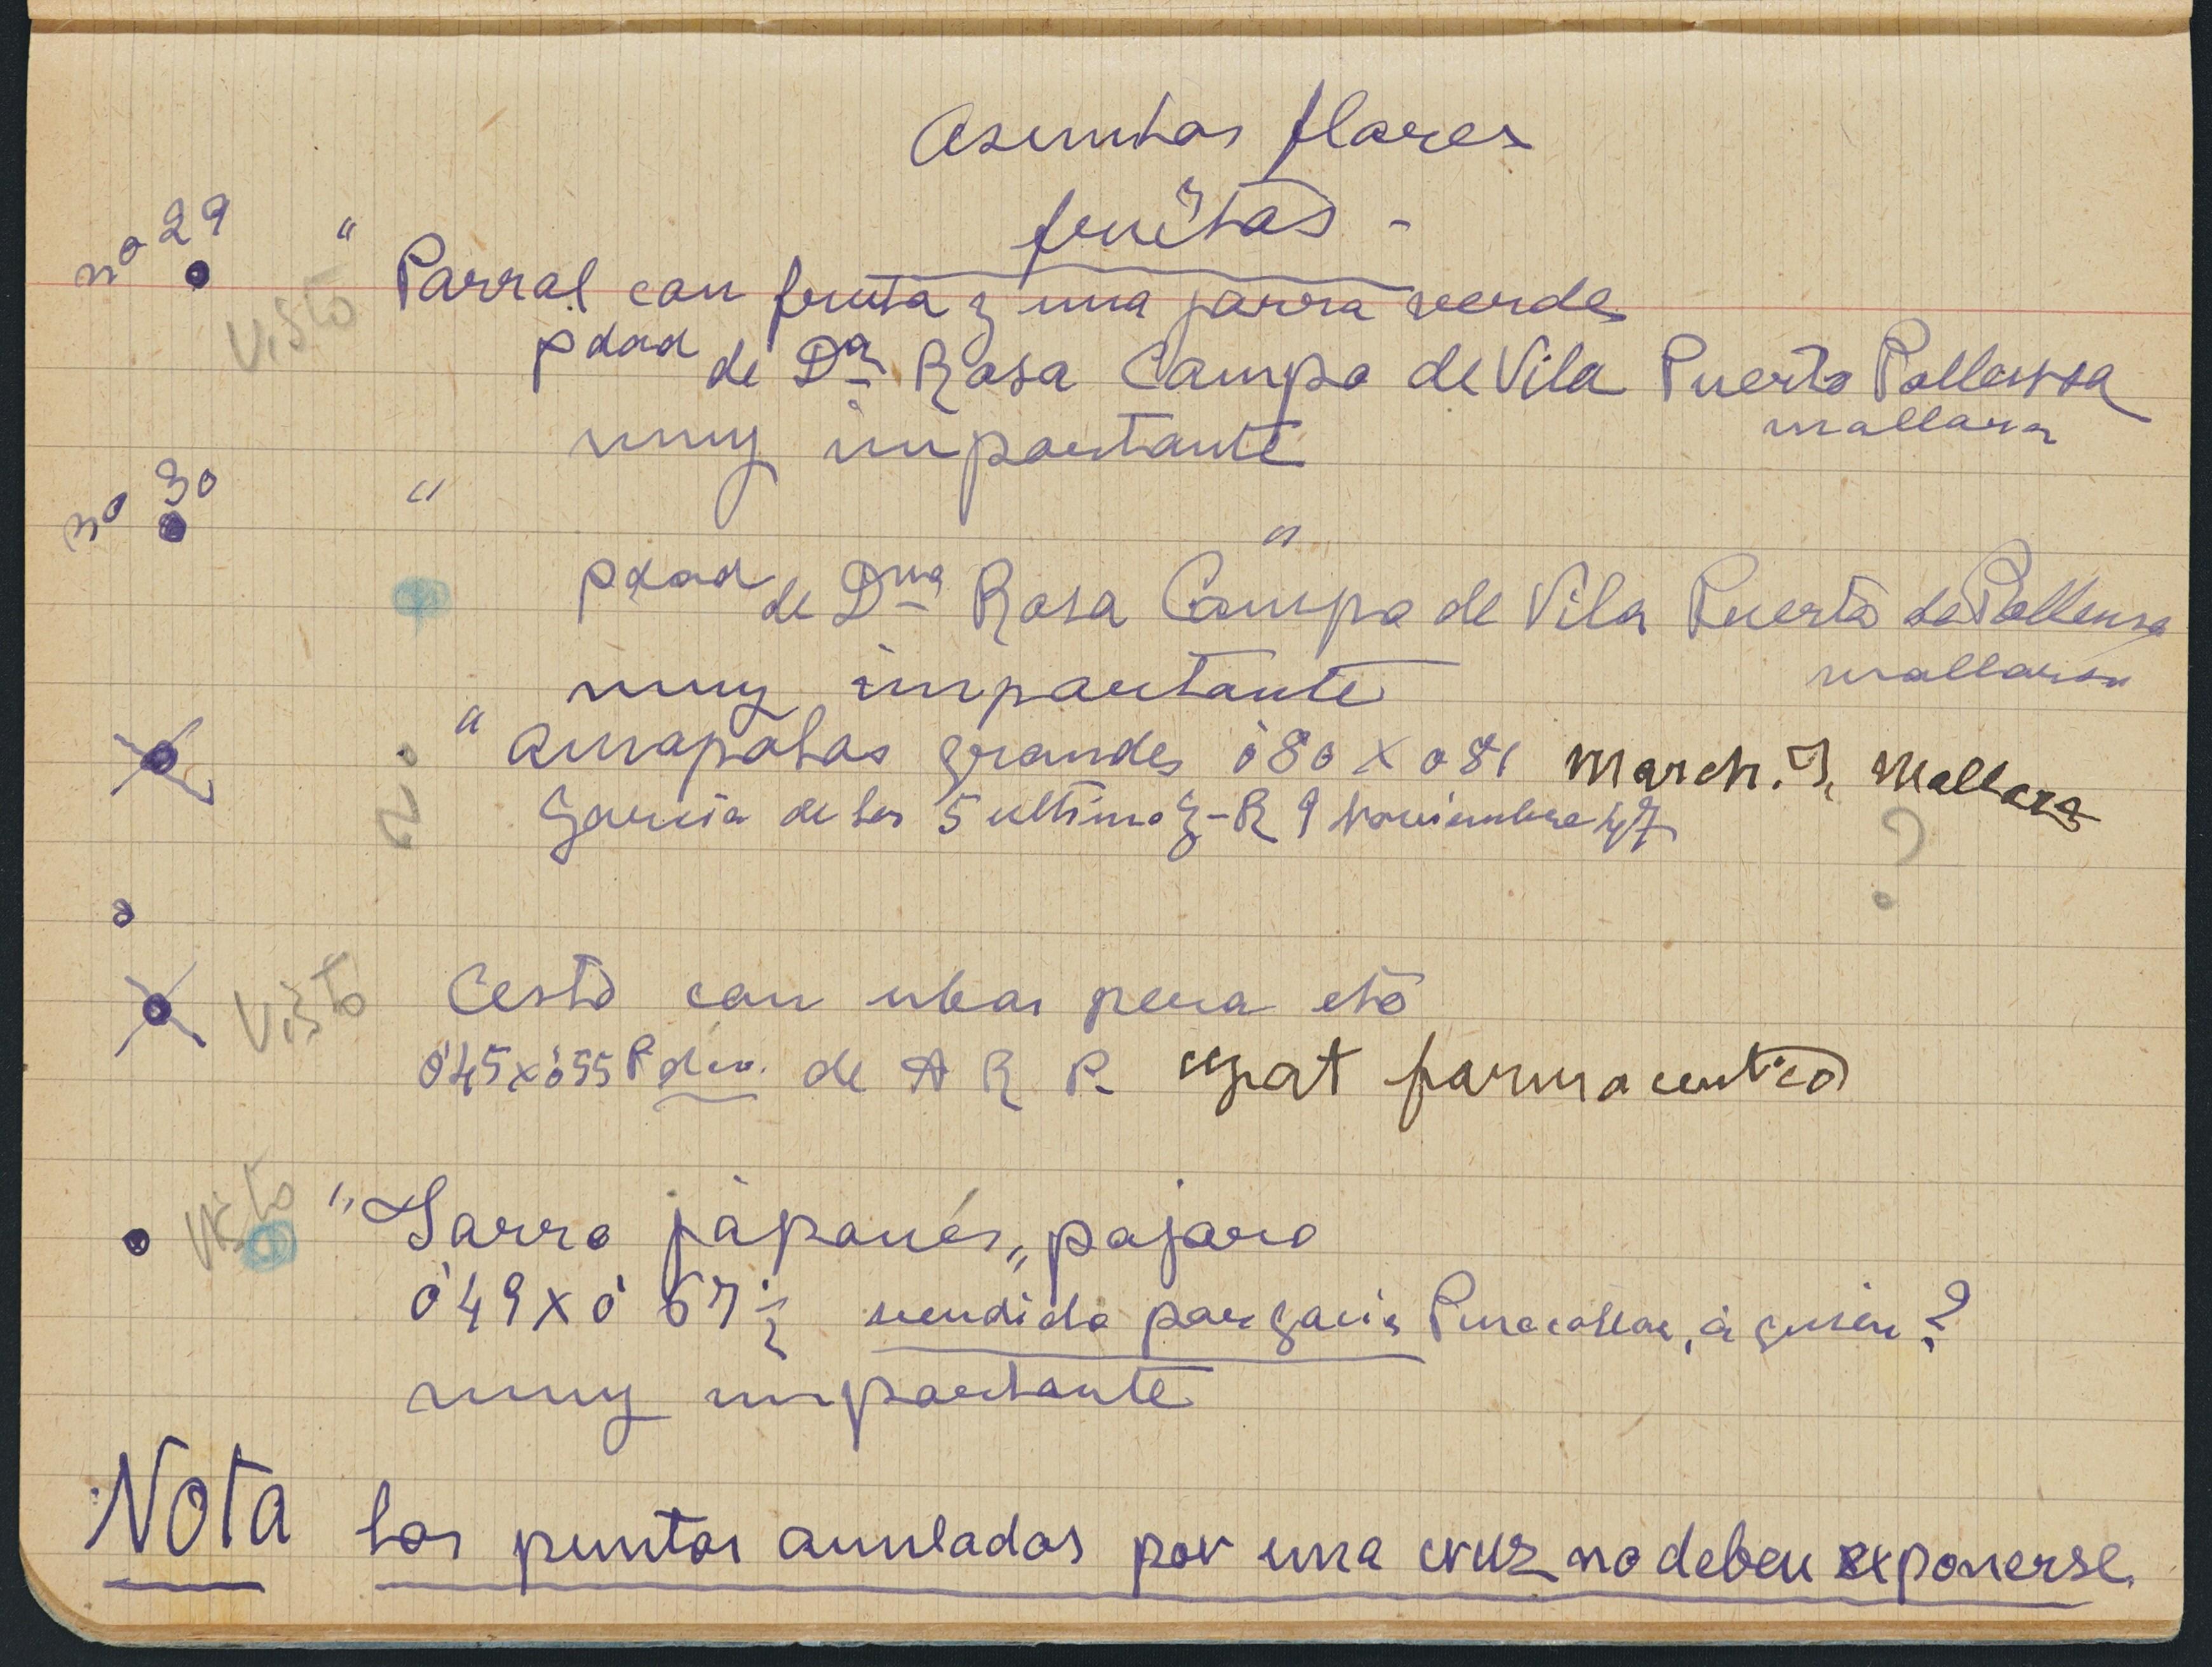 Asuntos flores
y
frutas -
nº 29 " Parral con fruta y una jarra verde
visto
pdad de Dª Rosa Campo de Vila Puerto Pollensa
mallorca
muy importante
nº 30 " "
pdad de Dña Rosa Campo de Vila Puerto de Pollensa
mallorca
muy importante
" amapolas grandes 0'80 x 081 March. J. Mallorca
Garcia de los 5 ultimos - R 9 Noviembre 47
?
visto Cesto con ubas pera etc
0'45 x 0'55 de A R R. farmaceutico
visto "Jarro japonés" pajaro
0'49 x 0'67 ½ vendido por á quien?
muy importante
Nota los puntos anulados por una cruz no deben exponerse.